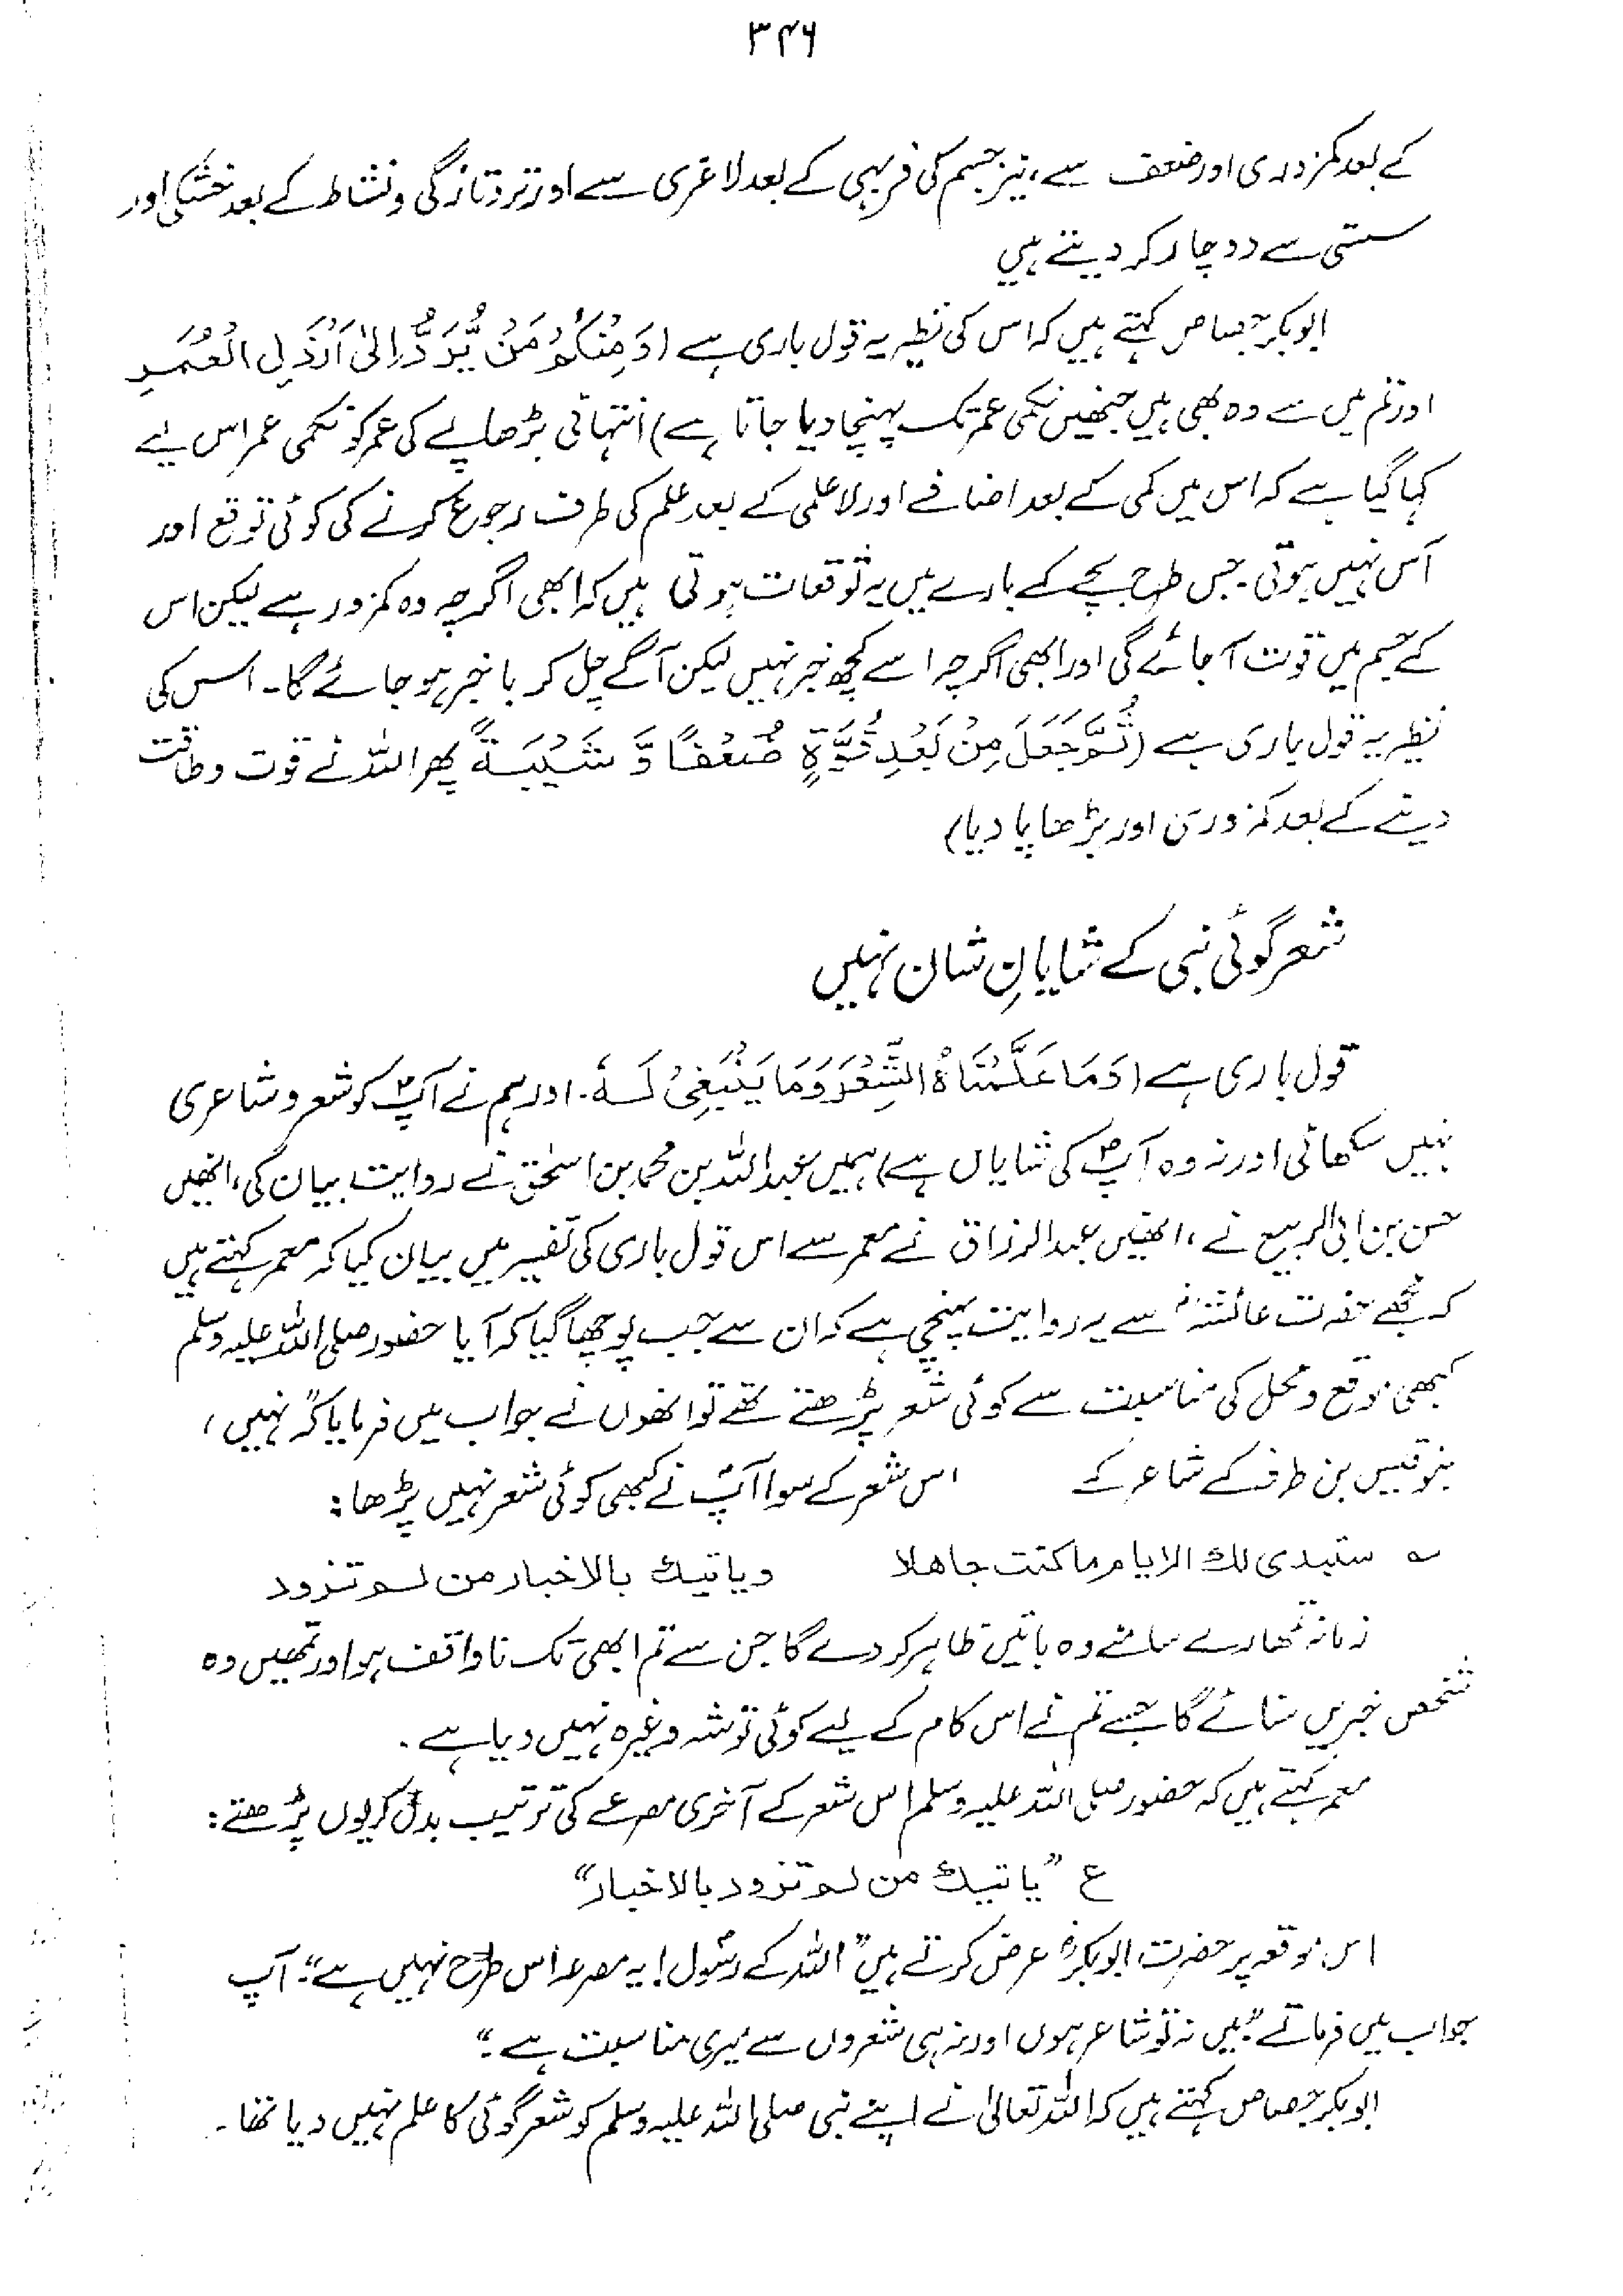 ۳۴۶
کے بعد کمزوری اور ضعف سے، نیز جسم کی فربہی کے بعد لاغری سے اور تر و تازگی و نشاط کے بعد خشکی اور
سستی سے دوچار کر دیتے ہیں
ابوبکر جصاص کہتے ہیں کہ اس کی نظیر یہ قول باری ہے (وَمِنْکُمْ مَنْ یُّرَدُّ اِلٰی اَرْذَلِ الْعُمُرِ
اور تم میں سے وہ بھی ہیں جنھیں نکمی عمر تک پہنچا دیا جاتا ہے) انتہائی بڑھاپے کی عمر کو نکمی عمر اس لیے
کہا گیا ہے کہ اس میں کمی کے بعد اضافے اور لاعلمی کے بعد علم کی طرف رجوع کرنے کی کوئی توقع اور
آس نہیں ہوتی۔ جس طرح بچے کے بارے میں یہ توقعات ہوتی ہیں کہ ابھی اگرچہ وہ کمزور ہے لیکن اس
کے جسم میں قوت آ جائے گی اور ابھی اگرچہ اسے کچھ خبر نہیں لیکن آگے چل کر باخبر ہو جائے گا۔ اس کی
نظیر یہ قول باری ہے (ثُمَّ جَعَلَ مِنْ بَعْدِ قُوَّۃٍ ضُعْفًا وَّ شَیْبَۃً پھر اللہ نے قوت و طاقت
دینے کے بعد کمزوری اور بڑھاپا دیا)
شعر گوئی نبی کے شایانِ شان نہیں
قول باری ہے (وَمَا عَلَّمْنَاہُ الشِّعْرَ وَمَا یَنْبَغِیْ لَہٗ۔ اور ہم نے آپؐ کو شعر و شاعری
نہیں سکھائی اور نہ وہ آپؐ کی شایاں ہے) ہمیں عبداللہ بن محمد بن اسحٰق نے روایت بیان کی، انھیں
حسن بن ابی الربیع نے، انھیں عبدالرزاق نے معمر سے اس قول باری کی تفسیر میں بیان کیا کہ معمر کہتے ہیں
کہ مجھے حضرت عائشہؓ سے یہ روایت پہنچی ہے کہ ان سے جب پوچھا گیا کہ آیا حضور صلی اللہ علیہ وسلم
کبھی موقع و محل کی مناسبت سے کوئی شعر پڑھتے تھے تو انھوں نے جواب میں فرمایا کہ "نہیں،
بنو قیس بن طرفہ کے شاعر کے اس شعر کے سوا آپؐ نے کبھی کوئی شعر نہیں پڑھا:
؎ ستبدی لك الایام ما کنت جاھلا ویاتیك بالاخبار من لم تزود
زمانہ تمھارے سامنے وہ باتیں ظاہر کر دے گا جن سے تم ابھی تک ناواقف ہو اور تمھیں وہ
شخص خبریں سنائے گا جسے تم نے اس کام کے لیے کوئی توشہ وغیرہ نہیں دیا ہے۔
معمر کہتے ہیں کہ حضور صلی اللہ علیہ وسلم اس شعر کے آخری مصرعے کی ترتیب بدل کر یوں پڑھتے:
ع "یاتیك من لم تزود بالاخبار"
اس موقعہ پر حضرت ابوبکرؓ عرض کرتے ہیں "اللہ کے رسول! یہ مصرعہ اس طرح نہیں ہے"۔ آپ
جواب میں فرماتے "میں نہ تو شاعر ہوں اور نہ ہی شعروں سے میری مناسبت ہے۔"
ابوبکر جصاص کہتے ہیں کہ اللہ تعالیٰ نے اپنے نبی صلی اللہ علیہ وسلم کو شعر گوئی کا علم نہیں دیا تھا۔